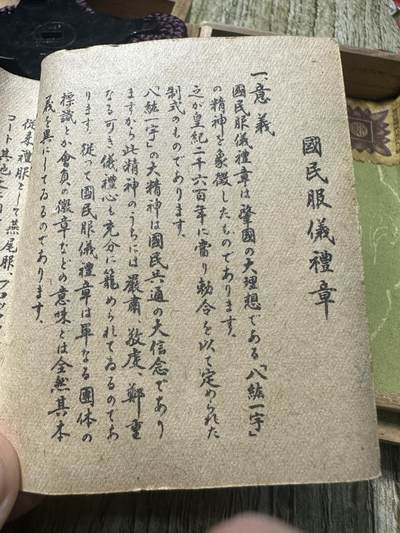 國民服儀禮章
一、意義
國民服儀禮章は肇國の大理想である「八紘一宇」
の精神を象徴したものであります。
之が皇紀二千六百年に當り勅令を以て定められた
制式のものであります。
八紘一宇」の大精神は國民共通の大信念であり
ますから此精神のうちには嚴肅、敬虔、鄭重
なる可き儀禮心も充分に籠められてゐるのであ
ります。從って國民服儀禮章は單なる團体の
標識とか會員の徽章などの意味とは全然其本
義を異にしてゐるのであります。
從來禮服として燕尾服、フロック
コート其他